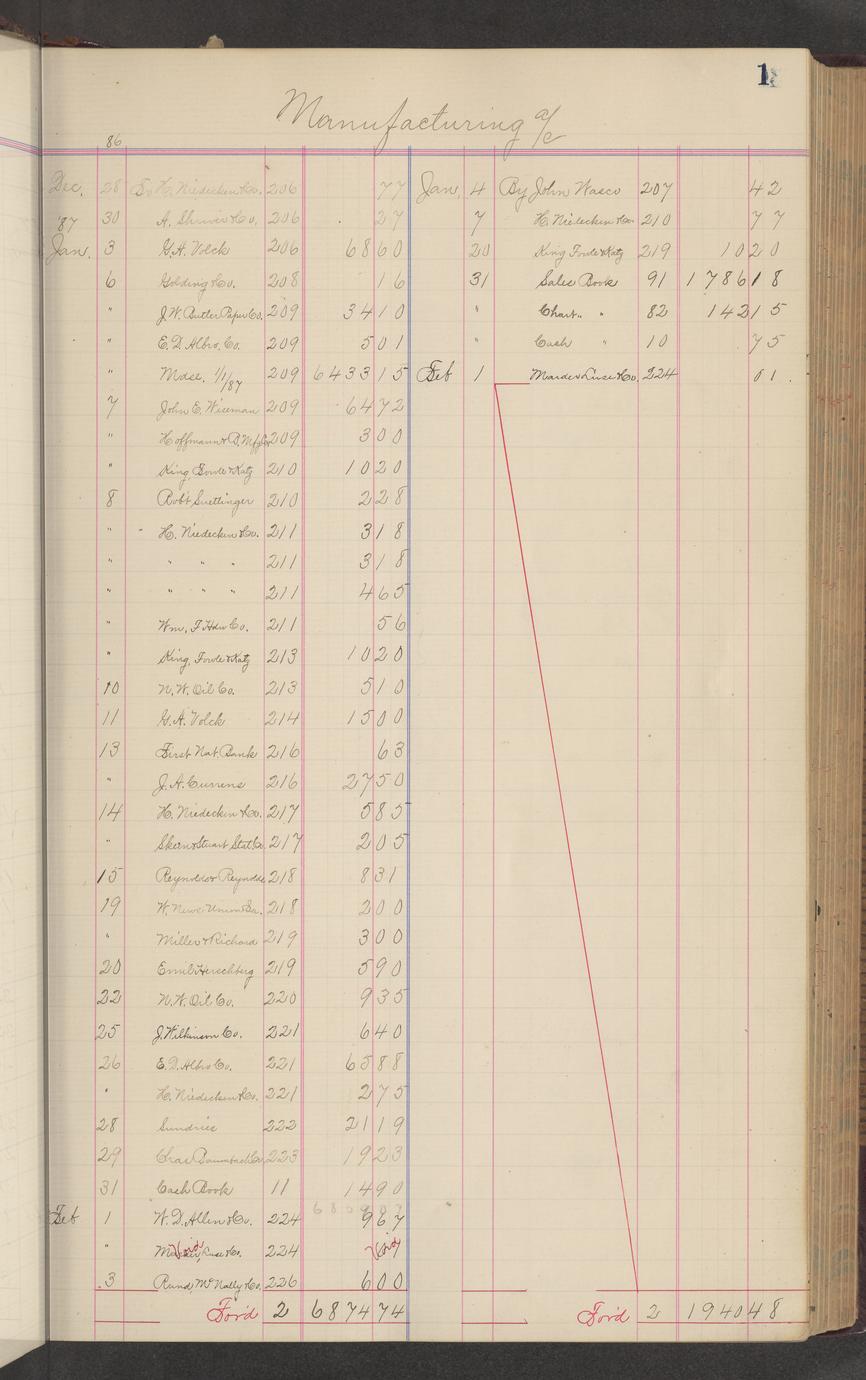 1
Manufacturing a/c
86
Dec. 28 To H. Niedecken & Co. 206 77
'87 30 A. Shriver & Co. 206 27
Jan. 3 G.A. Volck 206 68 60
6 Golding & Co. 208 16
" J.W. Butler Paper Co. 209 34 10
" E.D. Albro. Co. 209 5 01
" Mdse. 1/1/87 209 6433 15
7 John E. Wiseman 209 64 72
" Hoffmann & B. Mfg Co 209 3 00
" King, Fowle & Katz 210 10 20
8 Robt Suettinger 210 2 28
" H. Niedecken & Co. 211 3 18
" " " " 211 3 18
" " " " 211 4 65
" Wm, F. Hdw Co. 211 56
" King, Fowle & Katz 213 10 20
10 N.W. Oil Co. 213 5 10
11 G.A. Volck 214 15 00
13 First Nat. Bank 216 63
" J.A. Currens 216 27 50
14 H. Niedecken & Co. 217 5 85
" Skeen & Stuart Stat. Co. 217 2 05
15 Reynolds & Reynolds 218 8 31
19 W. News Union 218 2 00
" Miller & Richard 219 3 00
20 Emil Herschberg 219 5 90
22 N.W. Oil Co. 220 9 35
25 J. Wilkinson Co. 221 6 40
26 E.D. Albro Co. 221 65 88
" H. Niedecken & Co. 221 2 75
28 Sundries 222 21 19
29 Chas Baumbach Co. 223 19 23
31 Cash Book 11 14 90
Feb 1 W.D. Allen & Co. 224 9 67
" Marder, Luse & Co. Void 224 Void
3 Rand, McNally & Co. 226 6 00
For'd 2 6874 74
Jan. 4 By John Wasco 207 42
7 H. Niedecken & Co 210 77
20 King Fowle & Katz 219 10 20
31 Sales Book 91 1786 18
" Chart. " 82 142 15
" Cash " 10 75
Feb 1 Marder Luse & Co. 224 01
For'd 2 1940 48